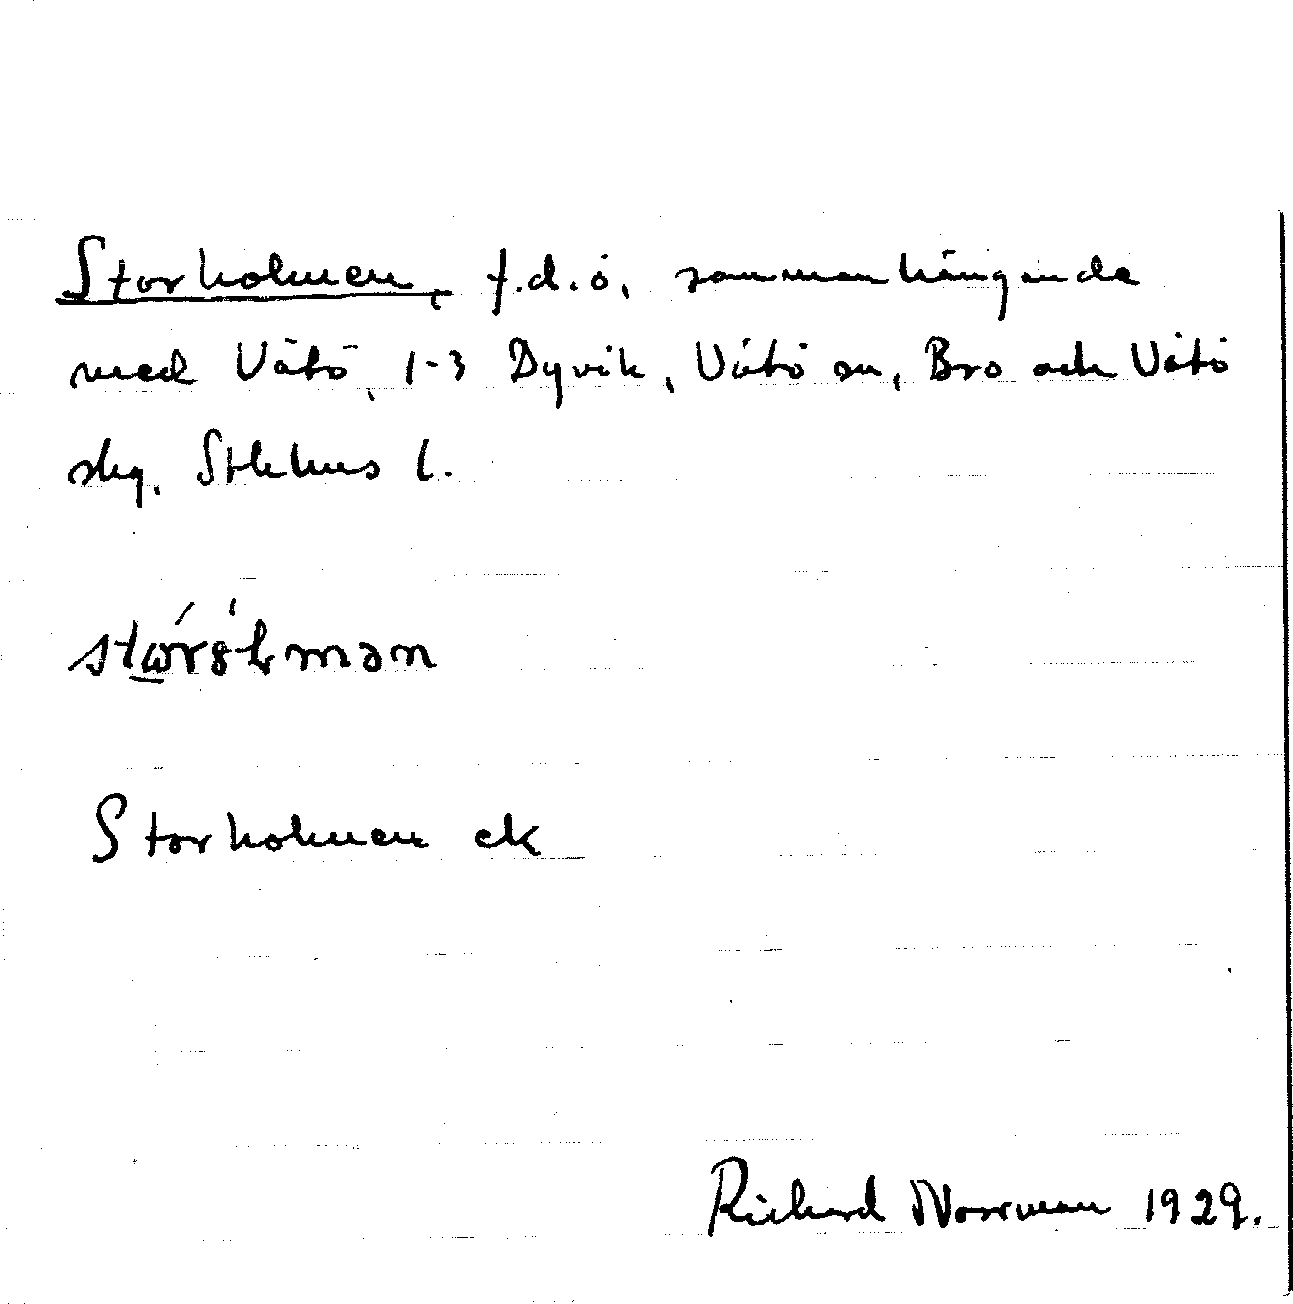 Storholmen, f.d. ö, sammanhängande
med Vätö, 1-3 Dyvik, Vätö sn, Bro och Vätö
skg, Sthlms l.
Storholmen ek
Richard Norrman 1929.